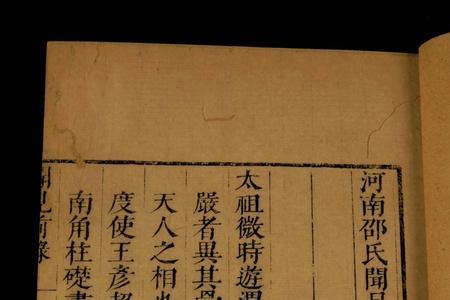 河南邵氏聞
太祖微時遊渭
嚴者異其骨
天人之相也
度使王彥超
南角柱礎晝
見前錄